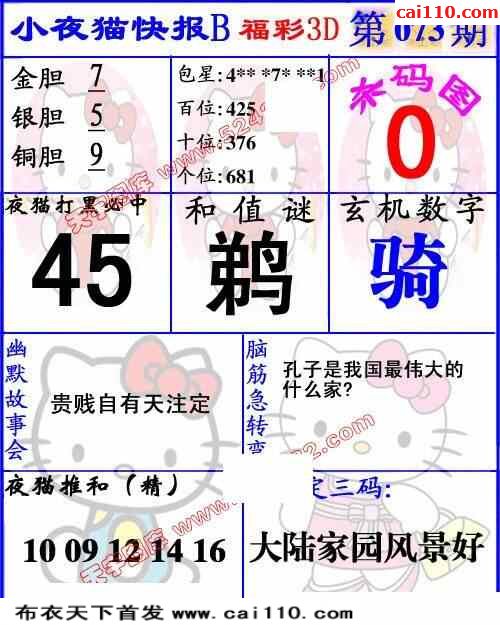 cai110.com
小夜猫快报B 福彩3D 第073期
金胆 7
银胆 5
铜胆 9
包星:4** *7* **1
百位:425
十位:376
个位:681
杀码图
0
夜猫打黑必中
45
和值谜
鹈
玄机数字
骑
幽默故事会
贵贱自有天注定
脑筋急转弯
孔子是我国最伟大的
什么家?
夜猫推和(精)
10 09 12 14 16
定三码:
大陆家园风景好
布衣天下首发 www.cai110.com